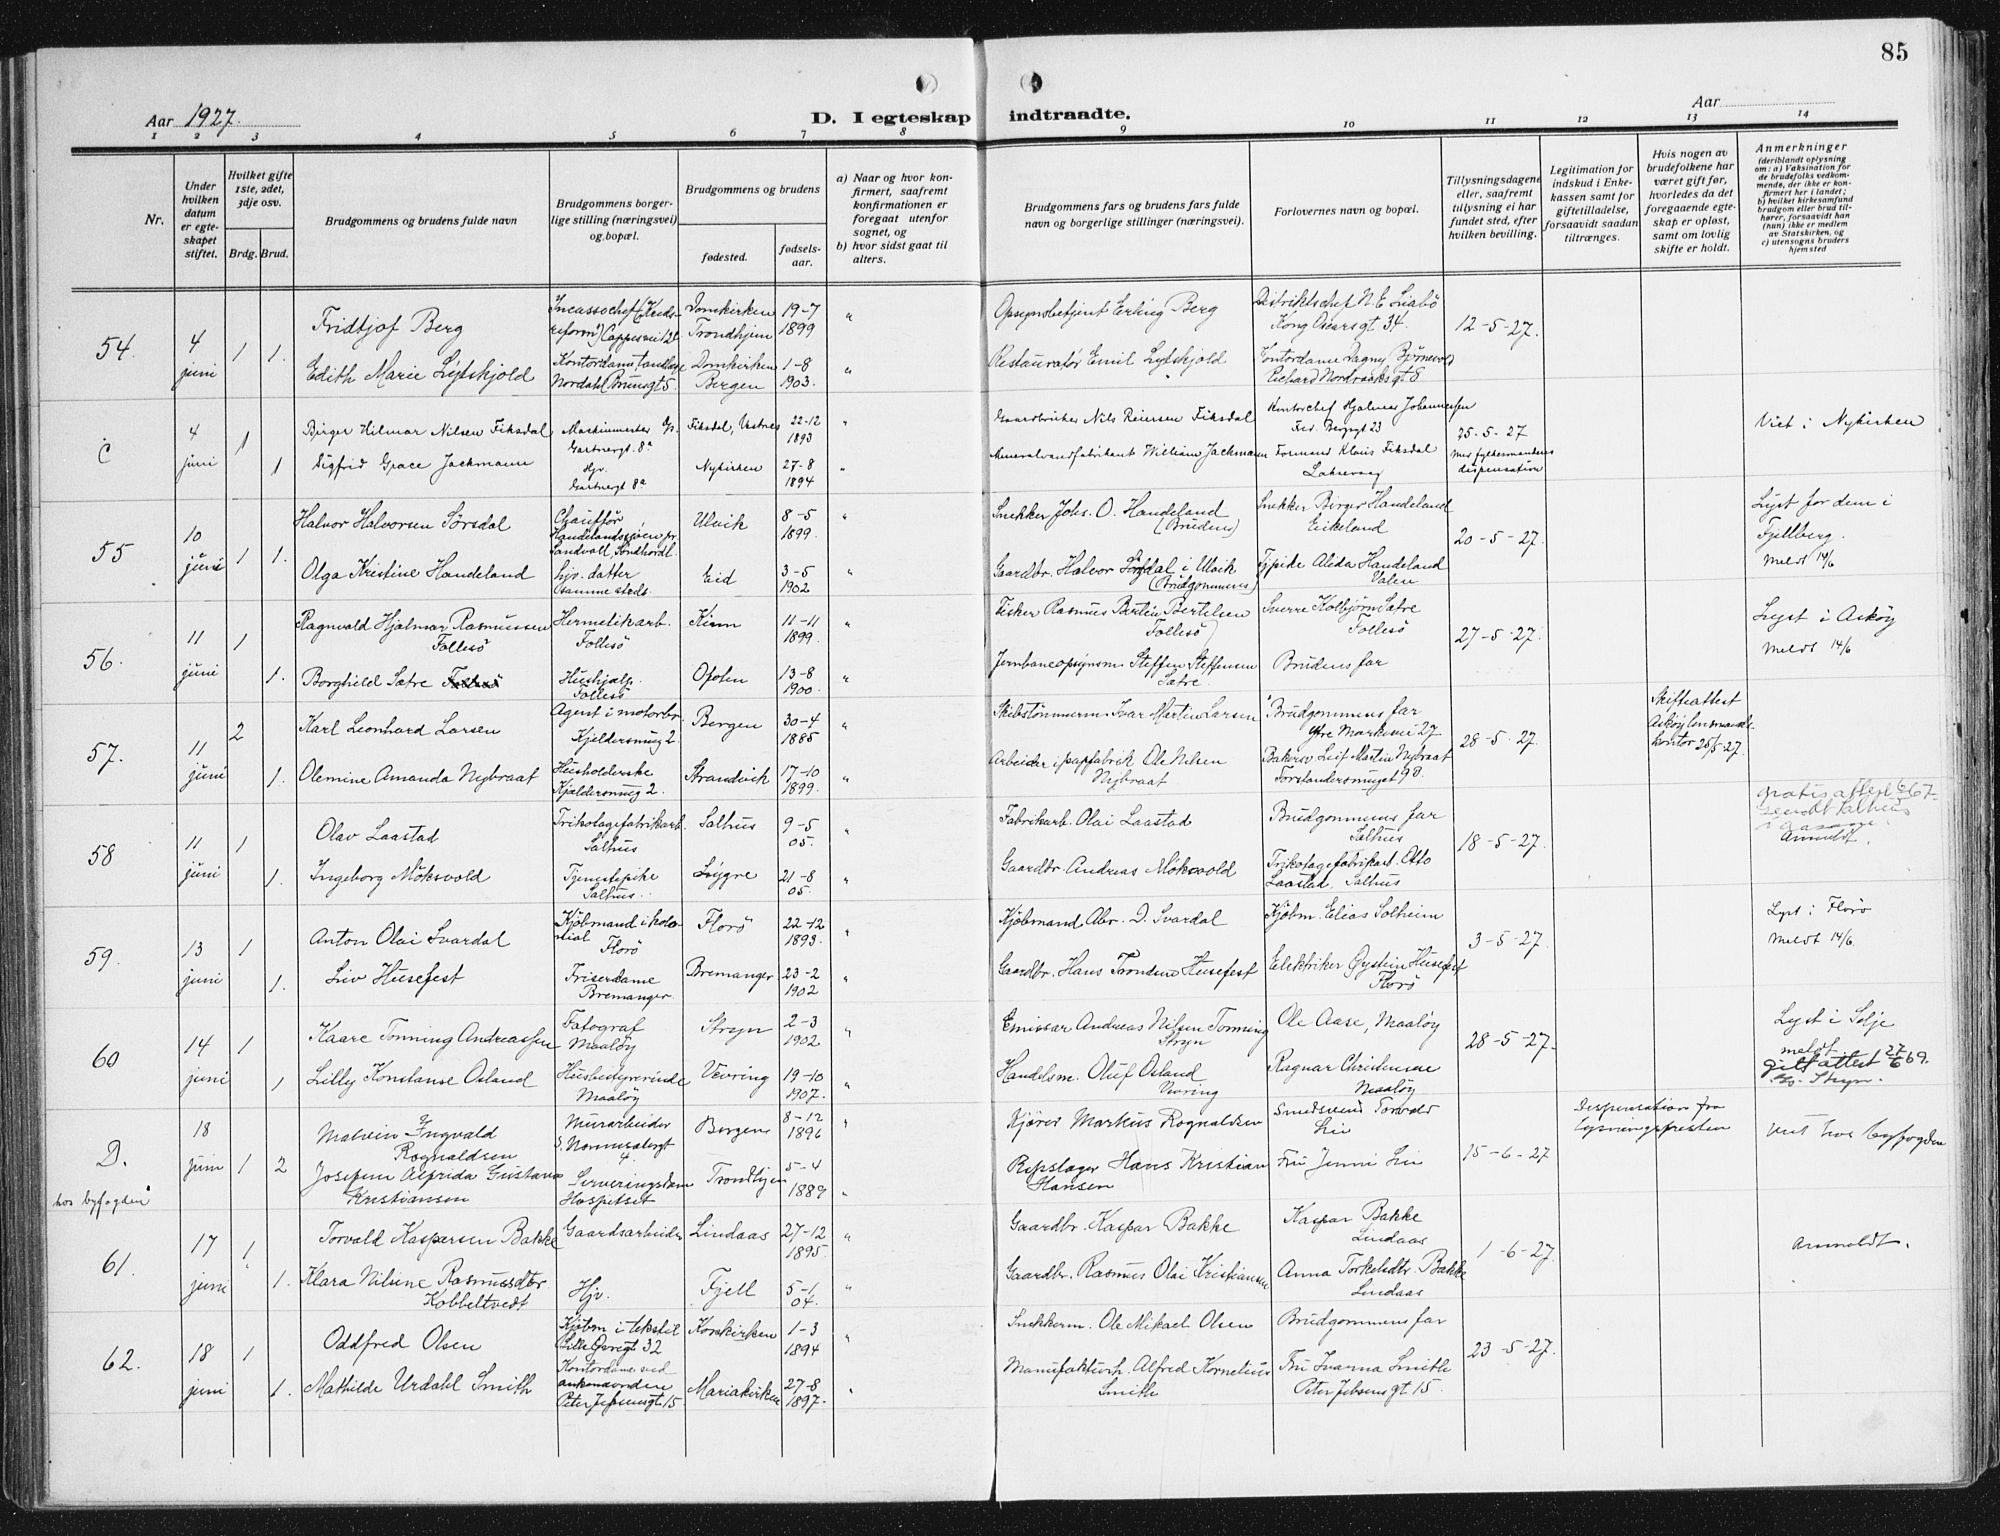 85
Aar 1927.
D. I egteskap indtraadte.
Aar
1 2 3 4 5 6 7 8 9 10 11 12 13 14
Nr.
Under hvilken datum er egteskapet stiftet.
Hvilket gifte 1ste, 2det, 3dje osv.
Brdg. Brud.
Brudgommens og brudens fulde navn
Brudgommens borgerlige stilling (næringsvei) og bopæl.
Brudgommens og brudens
fødested.
fødselsaar.
a) Naar og hvor konfirmert, saafremt konfirmationen er foregaat utenfor sognet, og
b) hvor sidst gaat til alters.
Brudgommens fars og brudens fars fulde navn og borgerlige stillinger (næringsvei).
Forlovernes navn og bopæl.
Tillysningsdagene eller, saafremt tillysning ei har fundet sted, efter hvilken bevilling.
Legitimation for indskud i Enkekassen samt for giftetilladelse, forsaavidt saadan tiltrænges.
Hvis nogen av brudefolkene har været gift før, hvorledes da det foregaaende egteskap er opløst, samt om lovlig skifte er holdt.
Anmerkninger
(deriblandt oplysning om: a) Vaksination for de brudefolks vedkommende, der ikke er konfirmert her i landet; b) hvilket kirkesamfund brudgom eller brud tilhører, forsaavidt han (hun) ikke er medlem av Statskirken, og c) utensogns bruders hjemsted
54. 4 juni 1 1.
Fridtjof Berg
Domkirken Trondhjem 19-7 1899 "
Opsynsbetjent Erling Berg
Distriktschef N. E. Liabö Kong Oscarsgt 34.
12-5-27.
Edith Marie Lydskjold
Nordahl Brunsgt 5
Domkirken Bergen 1-8 1903. "
Restauratør Emil Lydskjold
Kontordame Dagny
Richard Nordraaksgt 8
C 4 juni 1 1
Birger Hilmar Nilsen Fiksdal
Maskinmester
Gartnergt. 8a
Fiksdal, Vestnes 22-12 1893 "
Gaardbruker Nils Reiersen Fiksdal
Kontorchef Hjalmar Johannessen
25-5-27
Med fylkesmandens dispensation
Viet i Nykirken
Sigfrid Grace Jackmann
Hjv. Gartnergt 8a
Nykirken 27-8 1894 "
Mineralvandfabrikant William Jackmann
Formand Klaus Fiksdal Laksevaag
55 10 juni 1 1.
Halvor Halvorsen Sørsdal
Chauffør,
Ulvik 8-5 1899. "
Snekker Johs. O. Handeland (Brudens)
Snekker Birger Handeland Eikeland
20-5-27.
Lyst for dem i Fjellberg.
Meldt 14/6
Olga Kristine Handeland
hjv. datter
Eid 3-5 1902 "
Gaardbr. Halvor Sørsdal i Ulvik (Brudgommens)
Tjpike Alida Handeland Valen
56. 11 juni 1 1.
Ragnvald Hjalmar Rasmussen Follesö
Hermetikarb. Follesö
Kinn 11-11 1899. "
Fisker Rasmus Bertin Bertelsen Follesö
Sverre Kolbjørn Sætre Follesö
27-5-27.
Lyst i Askøy
Meldt 14/6
Borghild Sætre
Hushjælp. Follesö
13-8 1900. "
Jernbaneopsynsm Steffen Steffensen Sætre.
Brudens far
57. 11 juni 2 1.
Karl Leonhard Larsen
Agent i motorbr. Kjeldersmug 2.
Bergen 30-4 1885 "
Skibstømmerm. Ivar Martin Larsen
Brudgommens far
28-5-27.
Skifteattest Askøy lensmandskontor 25/5-27.
Olemine Amanda Nybraat
Husholderske Kjældersmug 2.
Strandvik 17-10 1899. "
Arbeider i papfabrik Ole Nilsen Nybraat
Bakersv Leif Martin Nybraat Forstandersmuget 9
58 11 juni 1 1.
Olav Laastad
Trikotagefabrikarb. Salhus
Salhus 9-5 05. "
Fabrikarb. Olai Laastad
Brudgommens far Salhus
18-5-27.
gratis attest
sendt Salhus
Anmeldt.
Ingeborg Möksvold
Tjenestepike Salhus.
Lygre 21-8 05. "
Gaardbr. Andreas Möksvold
Trikotagefabrikarb. Otto Laastad, Salhus
59. 13 juni 1 1.
Anton Olai Svardal
Kjöbmand i kolonial Florö
Florö 22-12 1893. "
Kjöbmand Abr. D. Svardal
Kjöbm. Elias Solheim
3-5-27.
Lyst i Florö
Meldt 14/6.
Liv Husefest
Friserdame Bremanger.
Bremanger 23-2 1902 "
Gaardbr. Hans Trondsen Husefest
Elektriker Øystein Husefest Florö
60 14 juni 1 1
Kaare Tonning Andreassen
Fotograf Maaløy
Stryn 2-3 1902 "
Emissær Andreas Nilsen Tonning Stryn
Ole Aase, Maaløy
28-5-27.
Lyst i Selje
meldt
gift attest 27/6 69.
Stryn.
Lilly Konstanse Osland
Husbestyrerinde Maaløy
Vevring 19-10 1907. "
Handelsm. Oluf Osland Vevring
Ragnar Christensen Maaløy
D. hos byfogden 18 juni 1 2
Ingvald Rognaldsen
Murarbeider
Bergen 8-12 1896 "
Kjører Markus Rognaldsen
Smedsvend Torvald Lie
15-6-27
Dispensation fra lysningsfristen
Viet hos byfogden
Josefine Alfrida Gustava Kristiansen
Serveringsdame Hospitset
Trondhjem 5-4 1889 "
Repslager Hans Kristian Hansen
Fru Jenni Lie
61. 17 juni 1 1.
Torvald Kaspersen Bakke
Gaardsarbeider
Lindaas 27-12 1895 "
Gaardbr. Kaspar Bakke
Kaspar Bakke Lindaas
1-6-27.
Anmeldt.
Klara Nilsine Rasmusdtr Kobbeltvedt
Hjv.
Fjell 5-1 04. "
Gaardbr. Rasmus Olai Kristiansen
Anna Torkelsdtr. Bakke Lindaas
62. 18 juni 1 1.
Oddfred Olsen
Kjöbm i tekstil Lille Øvregt 32
Korskirken 1-3 1894 "
Snekkerm. Ole Mikael Olsen
Brudgommens far
23-5-27.
Mathilde Urdahl Smith
Kontordame ved
Peter Jebsensgt 15
Mariakirken 27-8 1897. "
Manufakturh. Alfred Kornelius Smith
Fru Ivanna Smith Peter Jebsensgt 15.